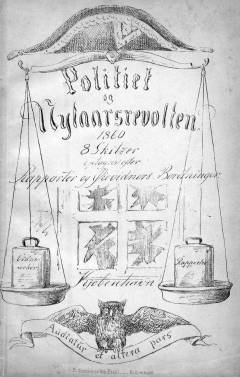 Politiet
og
Nytaarsrevolten
1860
8 Skitzer
efter
Rapporter og Øievidners Beretninger
Rapporter
Kjøbenhavn
Audiatur et altera pars